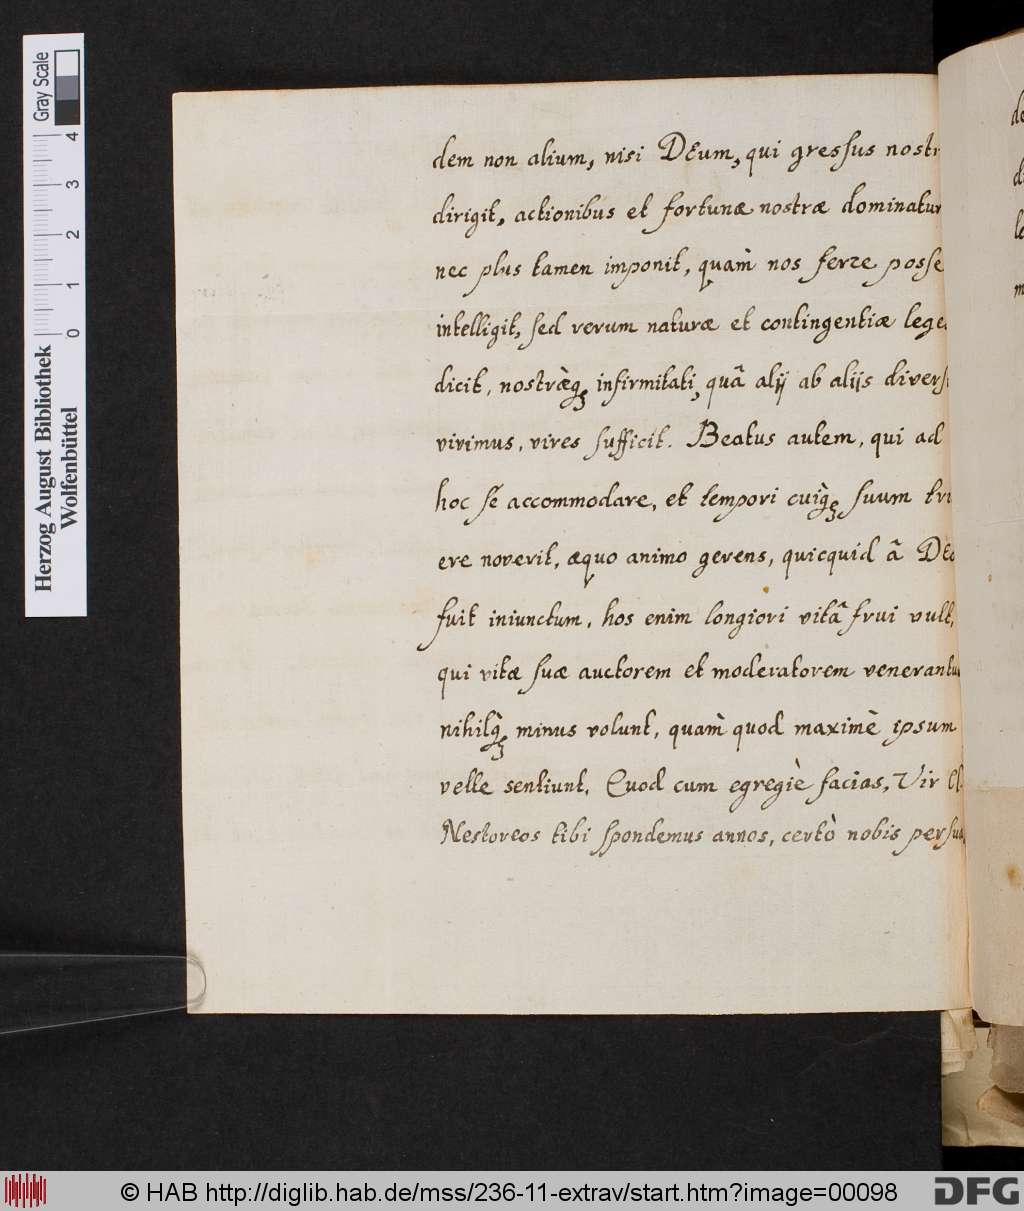 dem non alium, nisi DEum, qui gressus nostr
dirigit, actionibus et fortunæ nostræ dominatur
nec plus tamen imponit, quàm nos ferre posse
intelligit, sed rerum naturæ et contingentiæ lege
dicit, nostræ̀q; infirmitati, quâ alij ab alijs divers
vivimus, vires sufficit. Beatus autem, qui ad
hoc se accommodare, et tempori cuiq̀; suum tri
ere noverit, æquo animo gerens, quicquid â DEo
fuit iniunctum, hos enim longiori vitâ frui vult,
qui vitæ suæ auctorem et moderatorem venerantu
nihilq̀; minus volunt, quàm quod maximè ipsum
velle sentiunt. Quod cum egregiè facias, Vir Cl.
Nestoreos tibi spondemus annos, certò nobis persua
Herzog August Bibliothek
Wolfenbüttel
0 1 2 3 4
Gray Scale
© HAB http://diglib.hab.de/mss/236-11-extrav/start.htm?image=00098
DFG